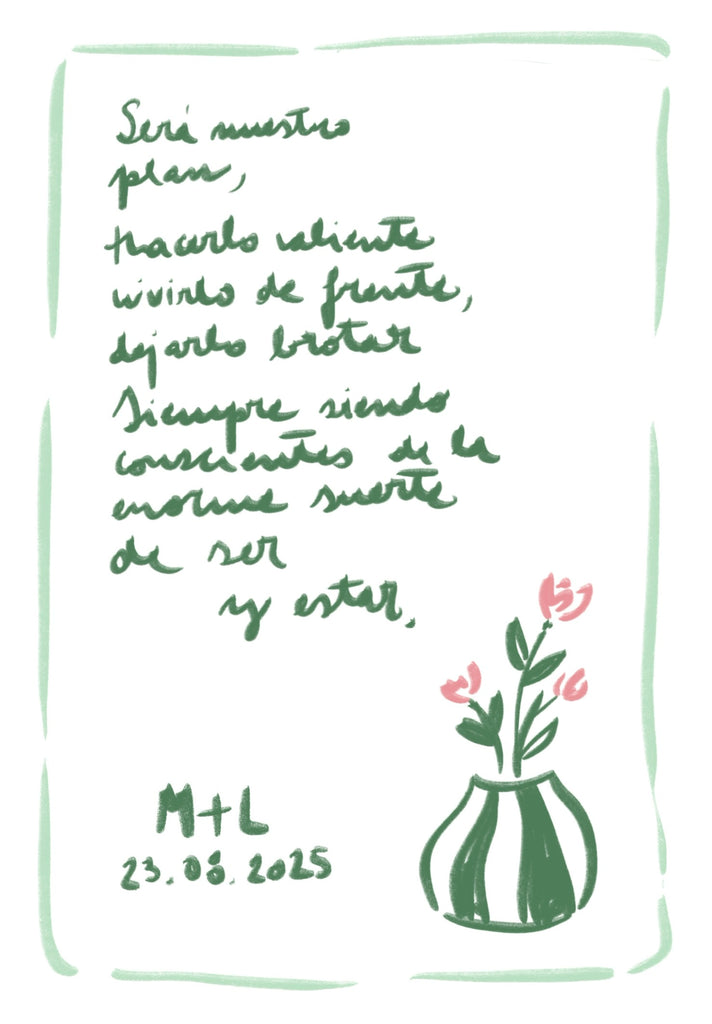 Será nuestro
plan,
Hacerlo valiente
vivirlo de frente,
dejarlo brotar
Siempre siendo
conscientes de la
enorme suerte
de ser
y estar.
M+L
23.08.2025